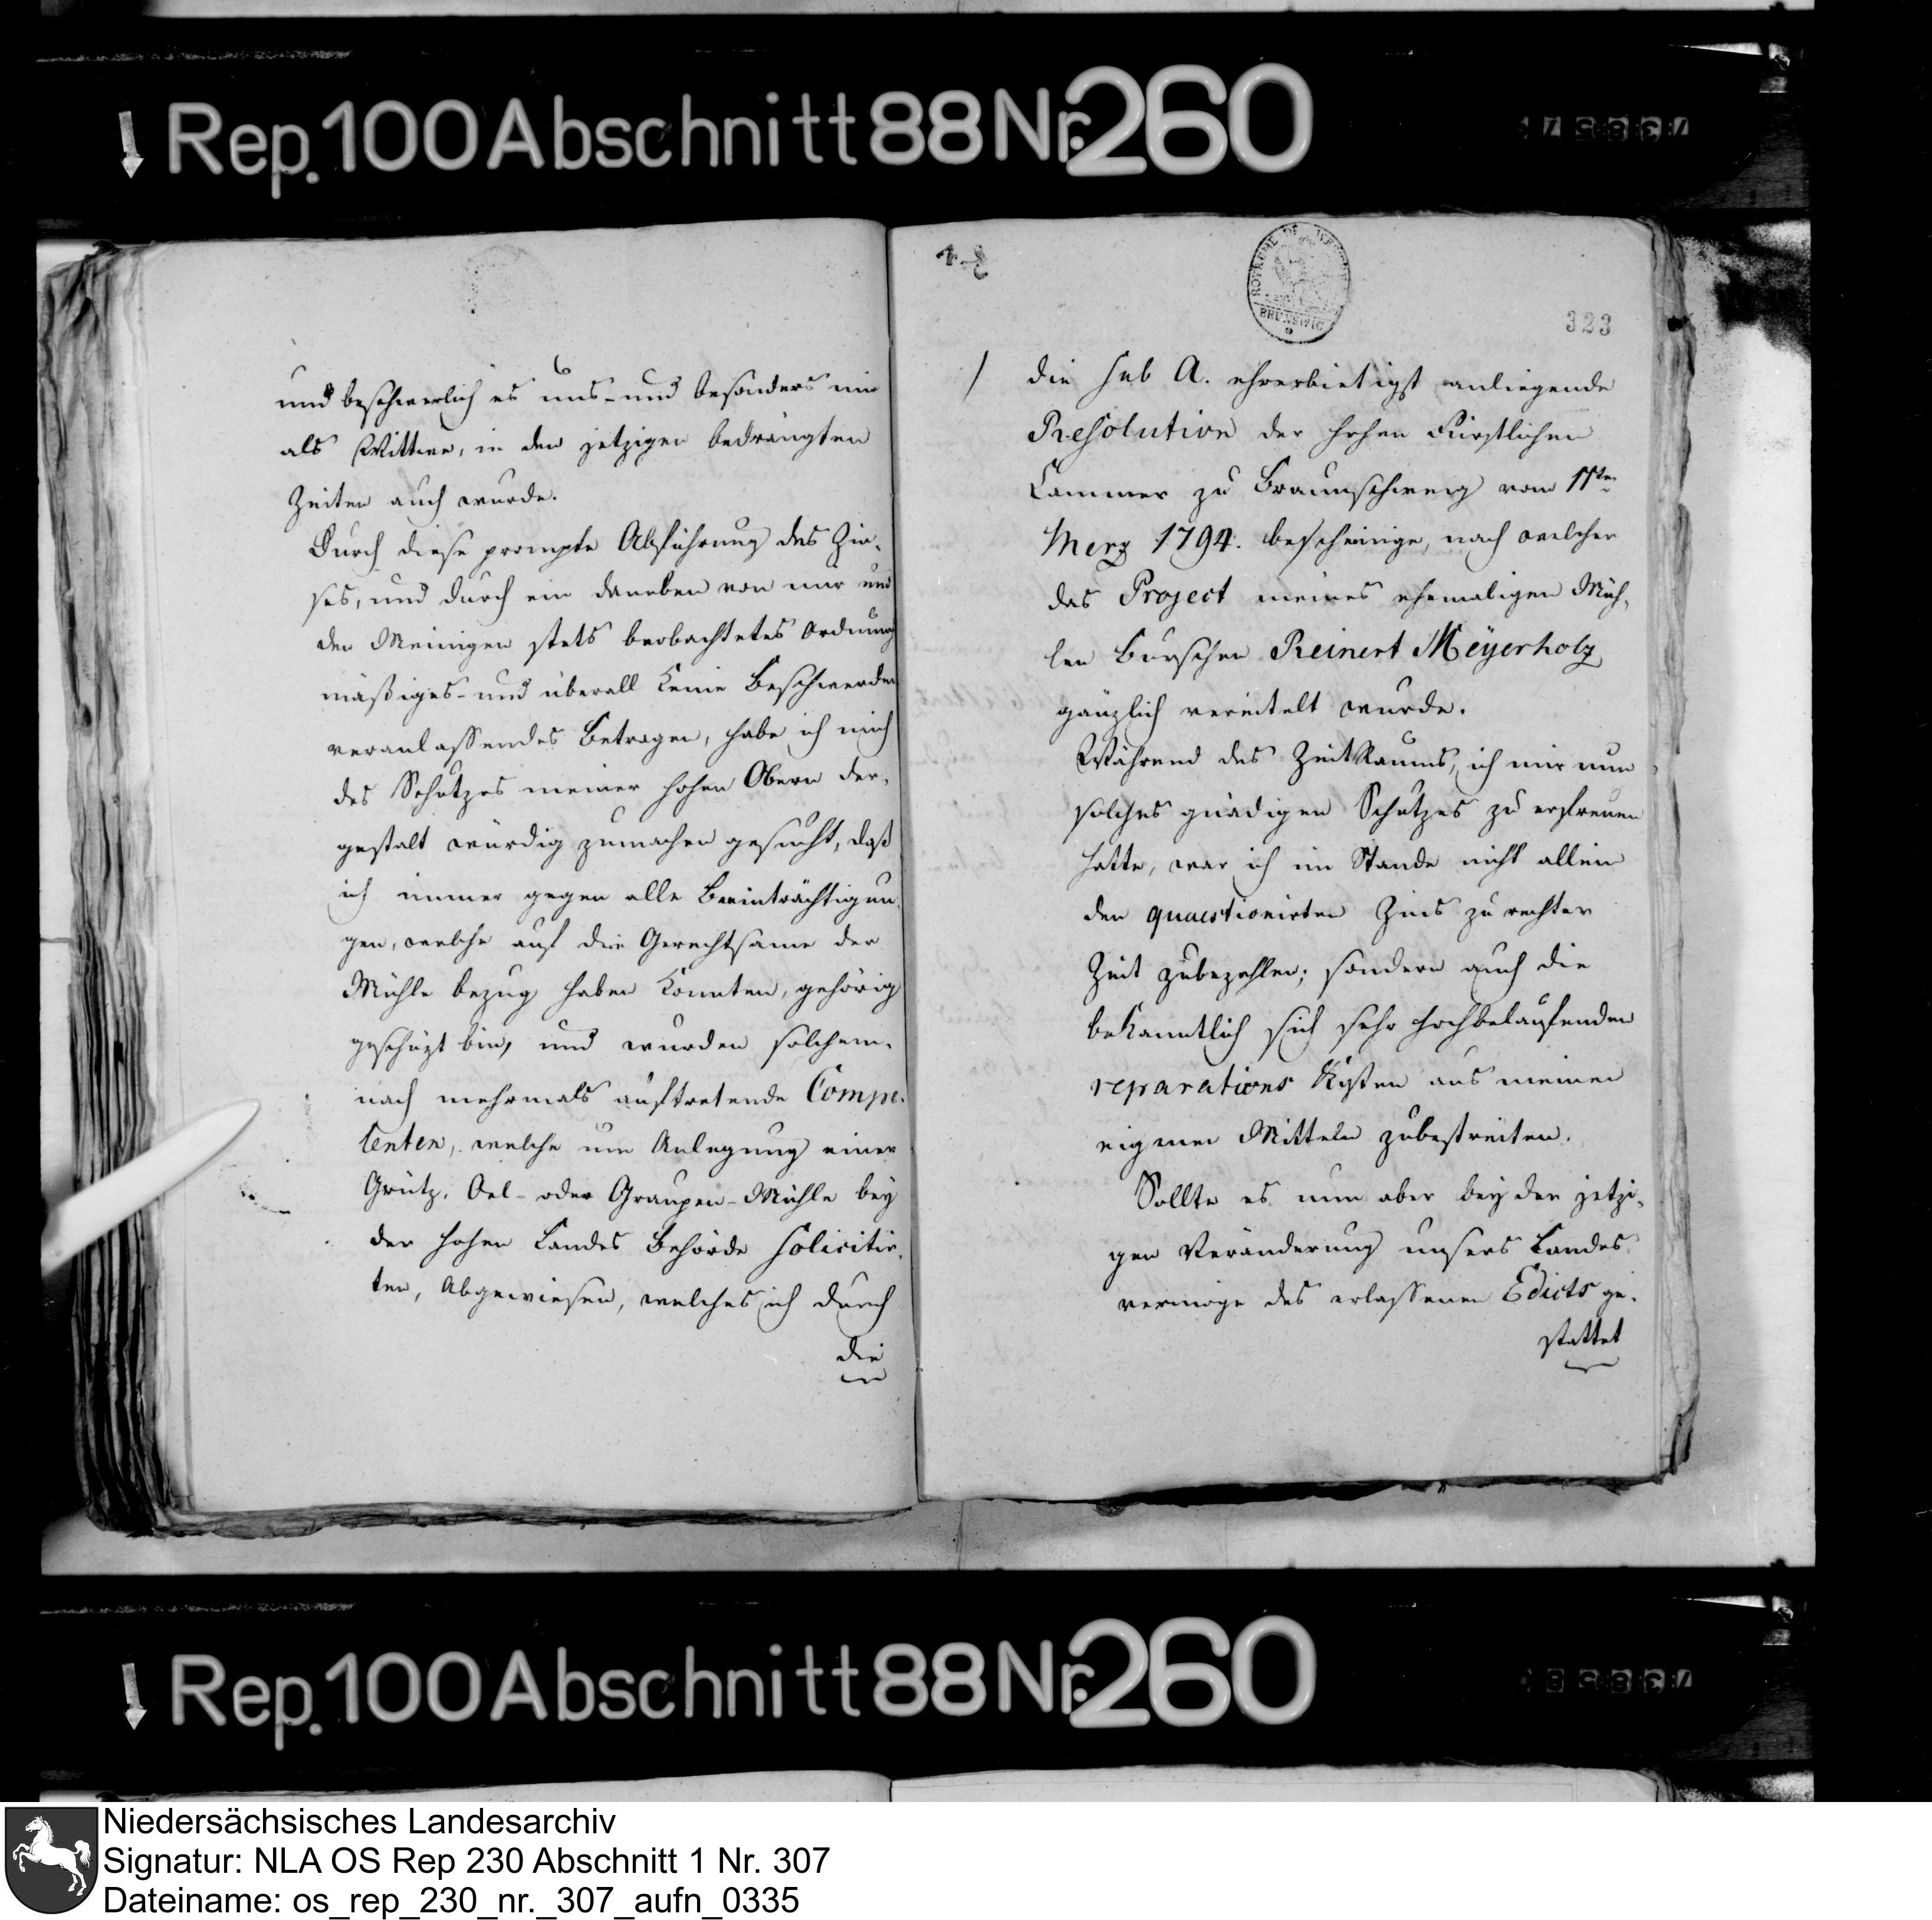 Rep. 100 Abschnitt 88 Nr. 260
und beschwerlich es uns- und besonders mir
als Wittwe, in den jetzigen bedrängten
Zeiten auch wurde.
Durch diese prompte Abführung des Zin-
ses, und durch ein daneben von mir und
den Meinigen stets beobachtetes Ordnung
mäßiges- und überall keine Beschwerden
veranlassendes Betragen, habe ich mich
des Schutzes meiner hohen Obern der-
gestalt würdig zumachen gesucht, daß
ich immer gegen alle Beeinträchtigun-
gen, welche auf die Gerechtsame der
Mühle bezug haben konnten, gehörig
geschüzt bin, und wurden solchem-
nach mehrmals auftretende Compe-
tenten, welche um Anlegung einer
Grütz- Oel- oder Graupen-Mühle bey
der hohen Landes Behörde solicitir-
ten, Abgewiesen, welches ich durch
die
ROYAUME DE
BRUNSWIC
323
die sub A. ehrerbietigst anliegende
Resolution der hohen Fürstlichen
Cammer zu Braunschweig vom 11ten
Merz 1794. bescheinige, nach welcher
das Project meines ehemaligen Müh-
len Burschen Reinert Meÿerholz
gänzlich vereitelt wurde.
Während des ZeitRaums, ich mir nun
solches gnädigen Schutzes zu erfreuen
hatte, war ich im Stande nicht allein
den quaestionirten Zins zu rechter
Zeit zubezahlen; sondern auch die
bekanntlich sich sehr hochbelaufenden
reparations Kosten aus meinen
eigenen Mitteln zubestreiten.
Sollte es nun aber bey der jetzi-
gen Veränderung unsers Landes
vermöge des erlassenen Edicts ge-
stattet
Rep. 100 Abschnitt 88 Nr. 260
Niedersächsisches Landesarchiv
Signatur: NLA OS Rep 230 Abschnitt 1 Nr. 307
Dateiname: os_rep_230_nr._307_aufn_0335